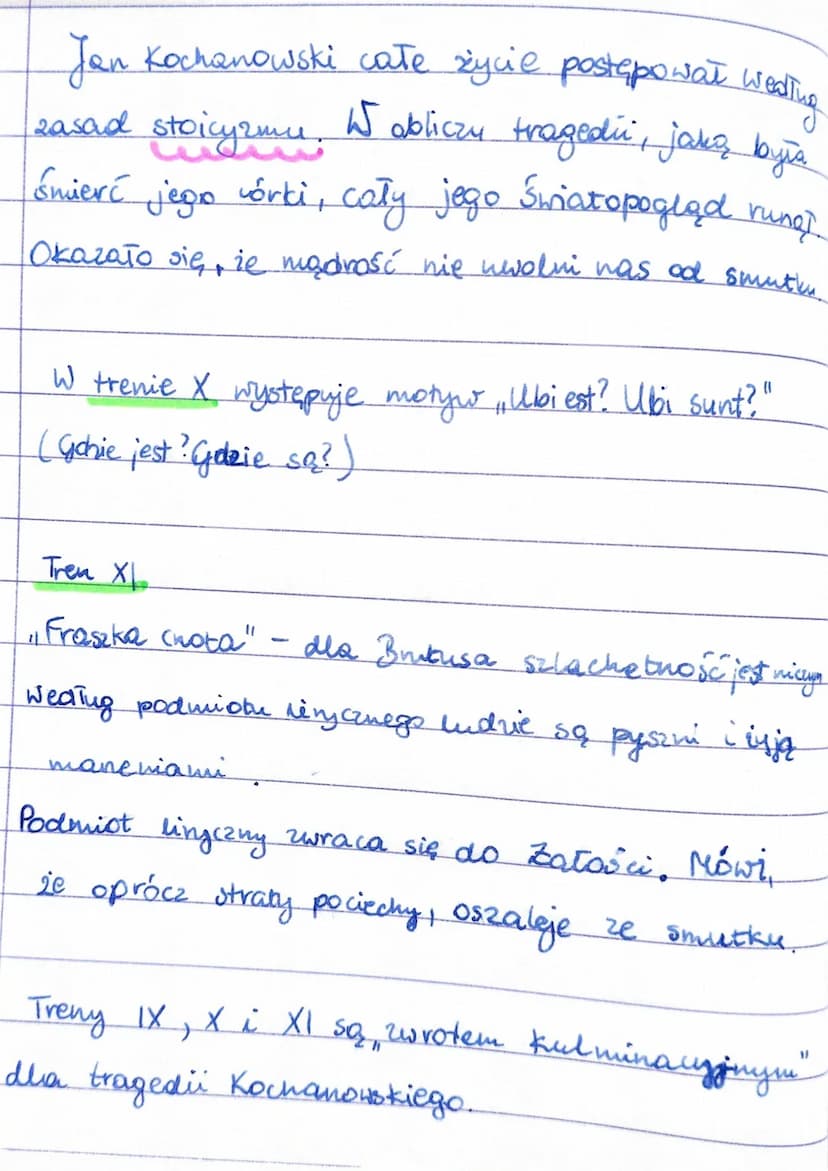 Jan Kochanowski całe życie postępował według
zasad stoicyzmu. W obliczu tragedii, jaką była
śmierć jego córki, cały jego światopogląd runął.
Okazało się, że mądrość nie uwolni nas od smutku.
W trenie X występuje motyw „Ubi est? Ubi sunt?"
(Gdzie jest? Gdzie są?)
Tren XI
„Fraszka cnota" - dla Brutusa szlachetność jest niczym
Według podmiotu lirycznego ludzie są pyszni i żyją
marzeniami.
Podmiot liryczny zwraca się do Żałości. Mówi,
że oprócz straty pociechy, oszaleje ze smutku.
Treny IX, X i XI są „zwrotem kulminacyjnym"
dla tragedii Kochanowskiego.